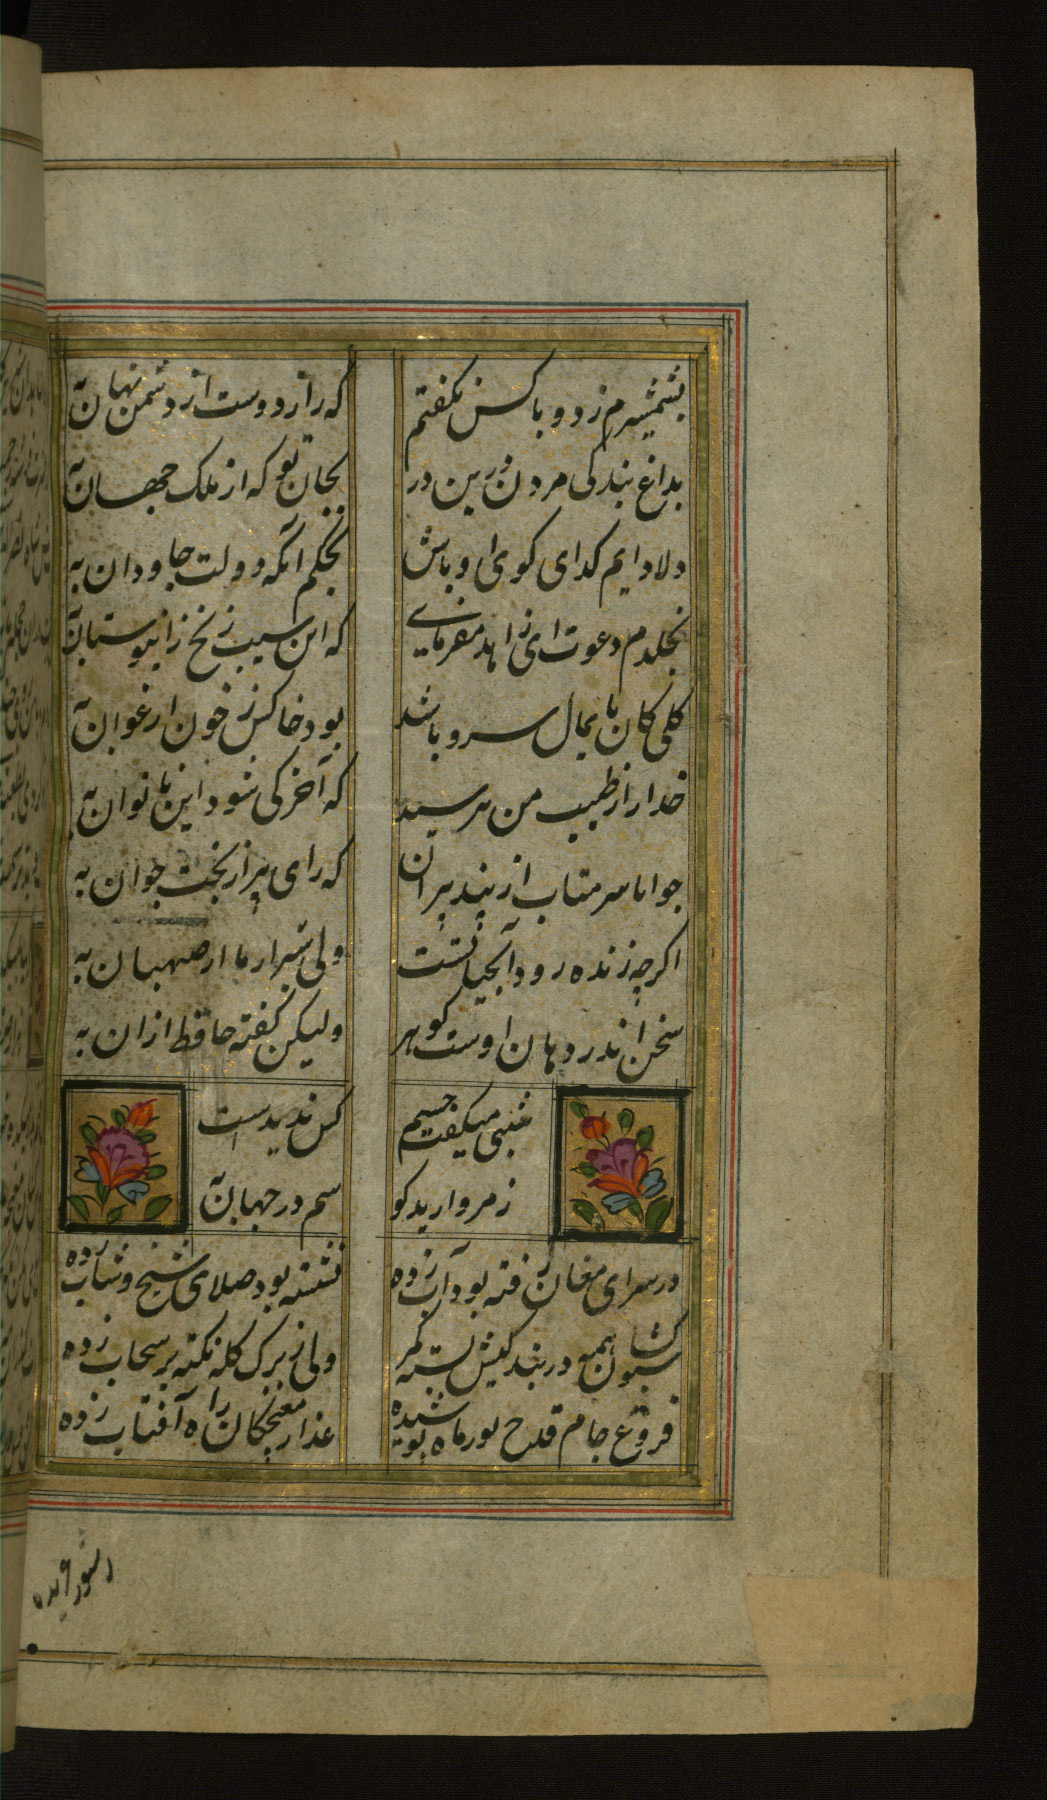 بشمشیرم زد و باکس نکفتم
که راز دوست از دشمن نهان به
بداغ بندکی مردن برین در
بجان تو که از ملک جهان به
دلا دایم کدای کوی او باش
بحکم آنکه دولت جاودان به
بخلدم دعوت ای زاهد مفرمای
که این سیب زنخ زان بوستان به
کلی کان پایمال سرو باشد
بود خاکش ز خون ارغوان به
خدارا از طبیب من بپرسید
که آخر کی شود این ناتوان به
جوانا سر متاب از پند پیران
که رای پیر از بخت جوان به
اکرچه زنده رود آب حیاتست
ولی شیراز ما از صفهان به
سخن اندر دهان دوست کوهر
ولیکن کفته حافظ از ان به
شبی میکفت چشم
کس ندیدست
ز مروارید کو
شم در جهان به
در سرای مغان رفته بود آب زده
نشسته بود صلای شیخ و شاب زده
سبوکشان همه در بندکیش بسته کمر
ولی ز ترک کله نکته بر سحاب زده
فروغ جام قدح نور ماه پوشیده
عذار مغبچکان راه آفتاب زده